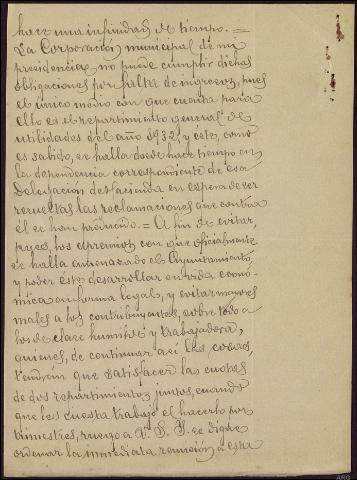 hace una infinidad de tiempo. =
La Corporación municipal de mi
presidencia, no puede cumplir dichas
obligaciones por falta de ingresos, pues
el único medio con que cuenta para
ello es el repartimiento general de
utilidades del año 1932, y este, como
es sabido, se halla desde hace tiempo en
la dependencia correspondiente de esa
Delegación de Hacienda en espera de ver
resueltas las reclamaciones que contra
él se han promovido. = A fin de evitar,
pues, los apremios con que oficialmente
se halla amenazado el Ayuntamiento,
y poder éste desarrollar su vida econó-
mica en forma legal, y evitar mayores
males a los contribuyentes, sobre todo a
los de clase humilde y trabajadora,
quienes, de continuar así las cosas,
tendrían que satisfacer las cuotas
de dos repartimientos juntos, cuando
que les cuesta trabajo el hacerlo por
trimestres, ruego a V. S. I. se digne
ordenar la inmediata remisión a esta
ARG